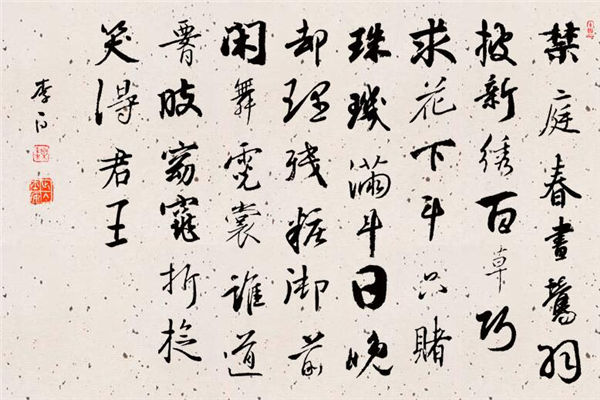 禁庭春晝鶯羽
披新绣百草巧
求花下斗只賭
珠璣滿斗日晚
却理残粧御前
閑舞霓裳誰道
腰肢窈窕折旋
笑得君王
李白